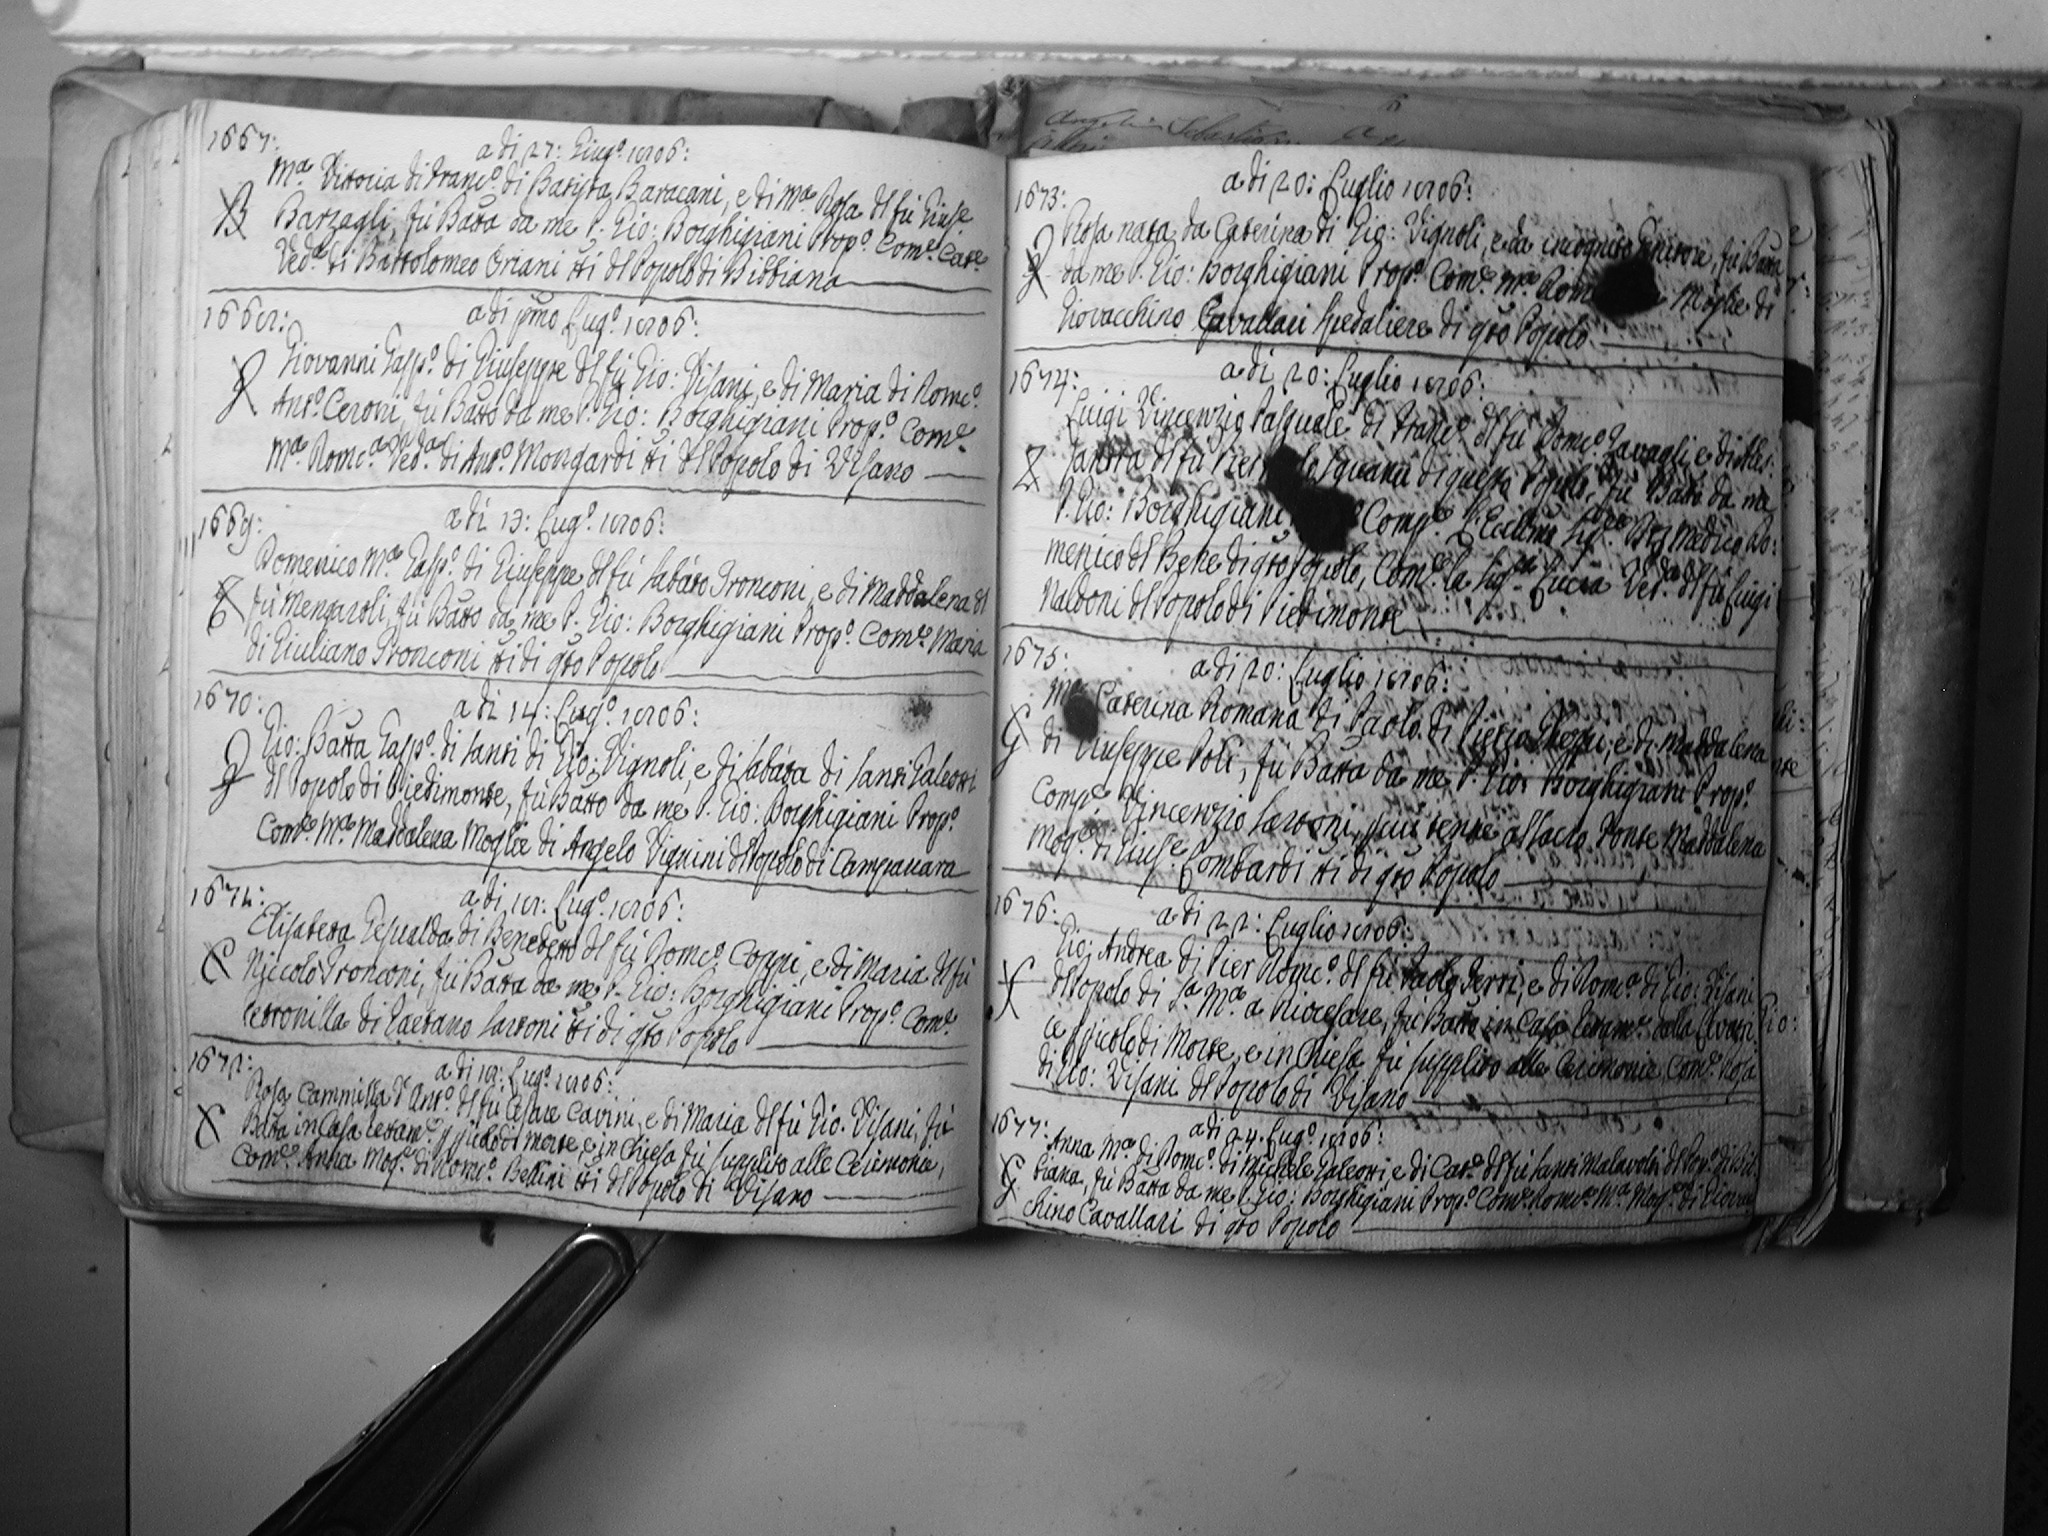 1667:
a di 27: Giug.º 1806:
M.ª Vittoria di Franc.º di Batista Baracani, e di M.ª Rosa del fù Gius.e
Barzagli, fù Batta da me P. Gio: Borghigiani Prop.º Com.e Cat.ª
Ved.ª di Bartolomeo Oriani tti del Popolo di Bibbiana
1668:
a di pmo Lug.º 1806:
Giovanni Gasp.º di Giuseppe del fù Gio: Visani, e di Maria di Dom.co
Ant.º Ceroni, fù Batto da me P. Gio: Borghigiani Prop.º Com.e
M.ª Dom.ca Ved.ª di Ant.º Mongardi tti del Popolo di Visano
1669:
a di 13: Lug.º 1806:
Domenico M.ª Gasp.º di Giuseppe del fù Sabato Tronconi, e di Maddalena del
fù Mengaroli, fù Batto da me P. Gio: Borghigiani Prop.º Com.e Maria
di Giuliano Tronconi tti di qto Popolo
1670:
a di 14: Lug.º 1806:
Gio: Batta Gasp.º di Santi di Gio: Vignoli, e di Sabata di Santi Galeotti
del Popolo di Piedimonte, fù Batto da me P. Gio: Borghigiani Prop.º
Com.e M.ª Maddalena Moglie di Angelo Vignini del Popolo di Campanara
1671:
a di 18: Lug.º 1806:
Elisabetta Gesualda di Benedetto del fù Dom.co Coppi, e di Maria del fù
Niccolo Tronconi, fù Batta da me P. Gio: Borghigiani Prop.º Com.e
Petronilla di Gaetano Sartoni tti di qto Popolo
1672:
a di 18: Lug.º 1806:
Rosa Cammilla d'Ant.º del fù Cesare Cavini, e di Maria del fù Gio. Visani, fù
Batta in Casa p picolo di morte, e in Chiesa fù supplito alle Cerimonie,
Com.e Anna Mog.e di Dom.co Bellini tti del Popolo di Visano
1673:
a di 20: Luglio 1806:
Rosa nata da Caterina di Gio: Vignoli, e da incognito Genitore, fù Batta
da me P. Gio: Borghigiani Prop.º Com.e M.ª Dom Moglie di
Giovacchino Cavallari Spedaliere di qto Popolo
1674:
a di 20: Luglio 1806:
Luigi Vincenzio Pasquale di Franc.º del fù Dom.co Savagli e di Ales:
sandra del fù di questo Popolo, fù Batto da me
P. Gio: Borghigiani Comp.e L'Eccllmo Sig.re Medico Do:
menico del Bene di qto Popolo, Com.e la Sig.ra Lucia Ved.ª del fù Luigi
Naldoni del Popolo di Piedimonte
1675:
a di 20: Luglio 1806:
M.ª Caterina Romana di Paolo di Pietro e di Maddalena
di Giuseppe Poli, fù Batta da me P. Gio: Borghigiani Prop.º
Comp.e Vincenzio Sartoni, p cui tenne al Sacro Fonte Maddalena
Mog.e di Gius.e Lombardi tti di qto Popolo
1676:
a di 22: Luglio 1806:
Gio: Andrea di Pier Dom.co del fù Paolo Ferri, e di Dom.ca di Gio: Visani
del Popolo di S.ª M.ª a Riocesare, fù Batto in Casa dalla Levatri
ce p picolo di Morte, e in Chiesa fù supplito alle Cerimonie, Com.e Rosa
di Gio: Visani del Popolo di Visano
1677:
a di 24. Lug.º 1806:
Anna M.ª di Dom.co di Michele Galeotti e di Cat.ª del fù Santi Malavolti del Pop.º di Bib:
biana, fù Batta da me P. Gio: Borghigiani Prop.º Com.e Dom.ca M.ª Mog.e di Giovac
chino Cavallari di qto Popolo